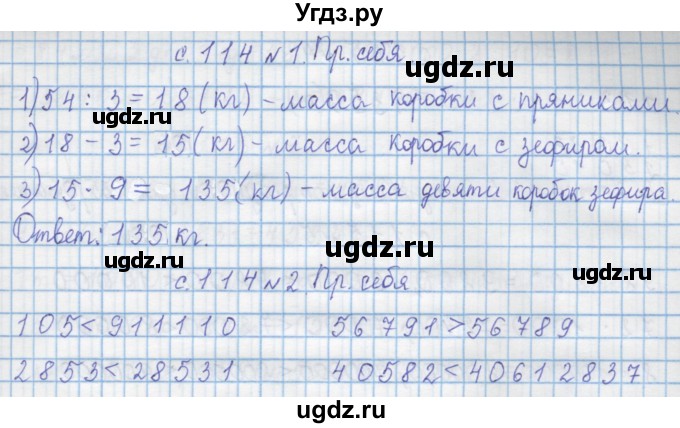 Угдз.ру
с. 114 №1. Пр. себя
ugdz.ru
1) 54 : 3 = 18 (кг) - масса коробки с пряниками.
ugdz.ru
2) 18 - 3 = 15 (кг) - масса коробки с зефиром.
ugdz.ru
3) 15 · 9 = 135 (кг) - масса девяти коробок зефира.
Ответ: 135 кг.
ugdz.ru
ugdz.ru
с. 114 №2. Пр. себя
ugdz.ru
105 < 911110 56791 > 56789
ugdz.ru
2853 < 28531 40582 < 40612837
ugdz.ru